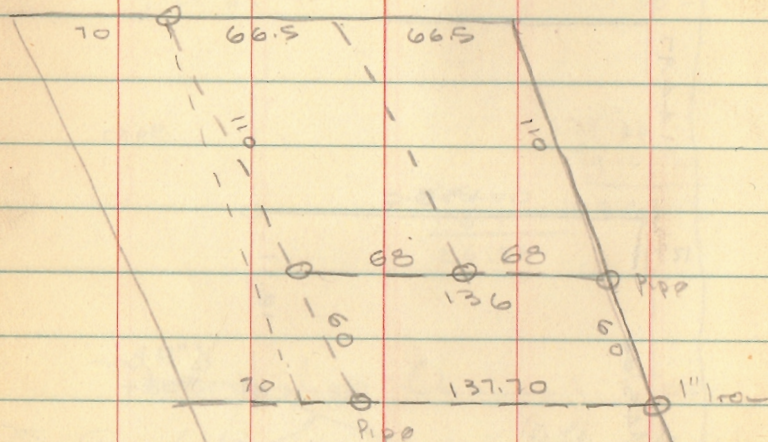 70 66.5 66.5
110 110
68 68
136 Pipe
60 60
70 137.70 1" Iron
Pipe